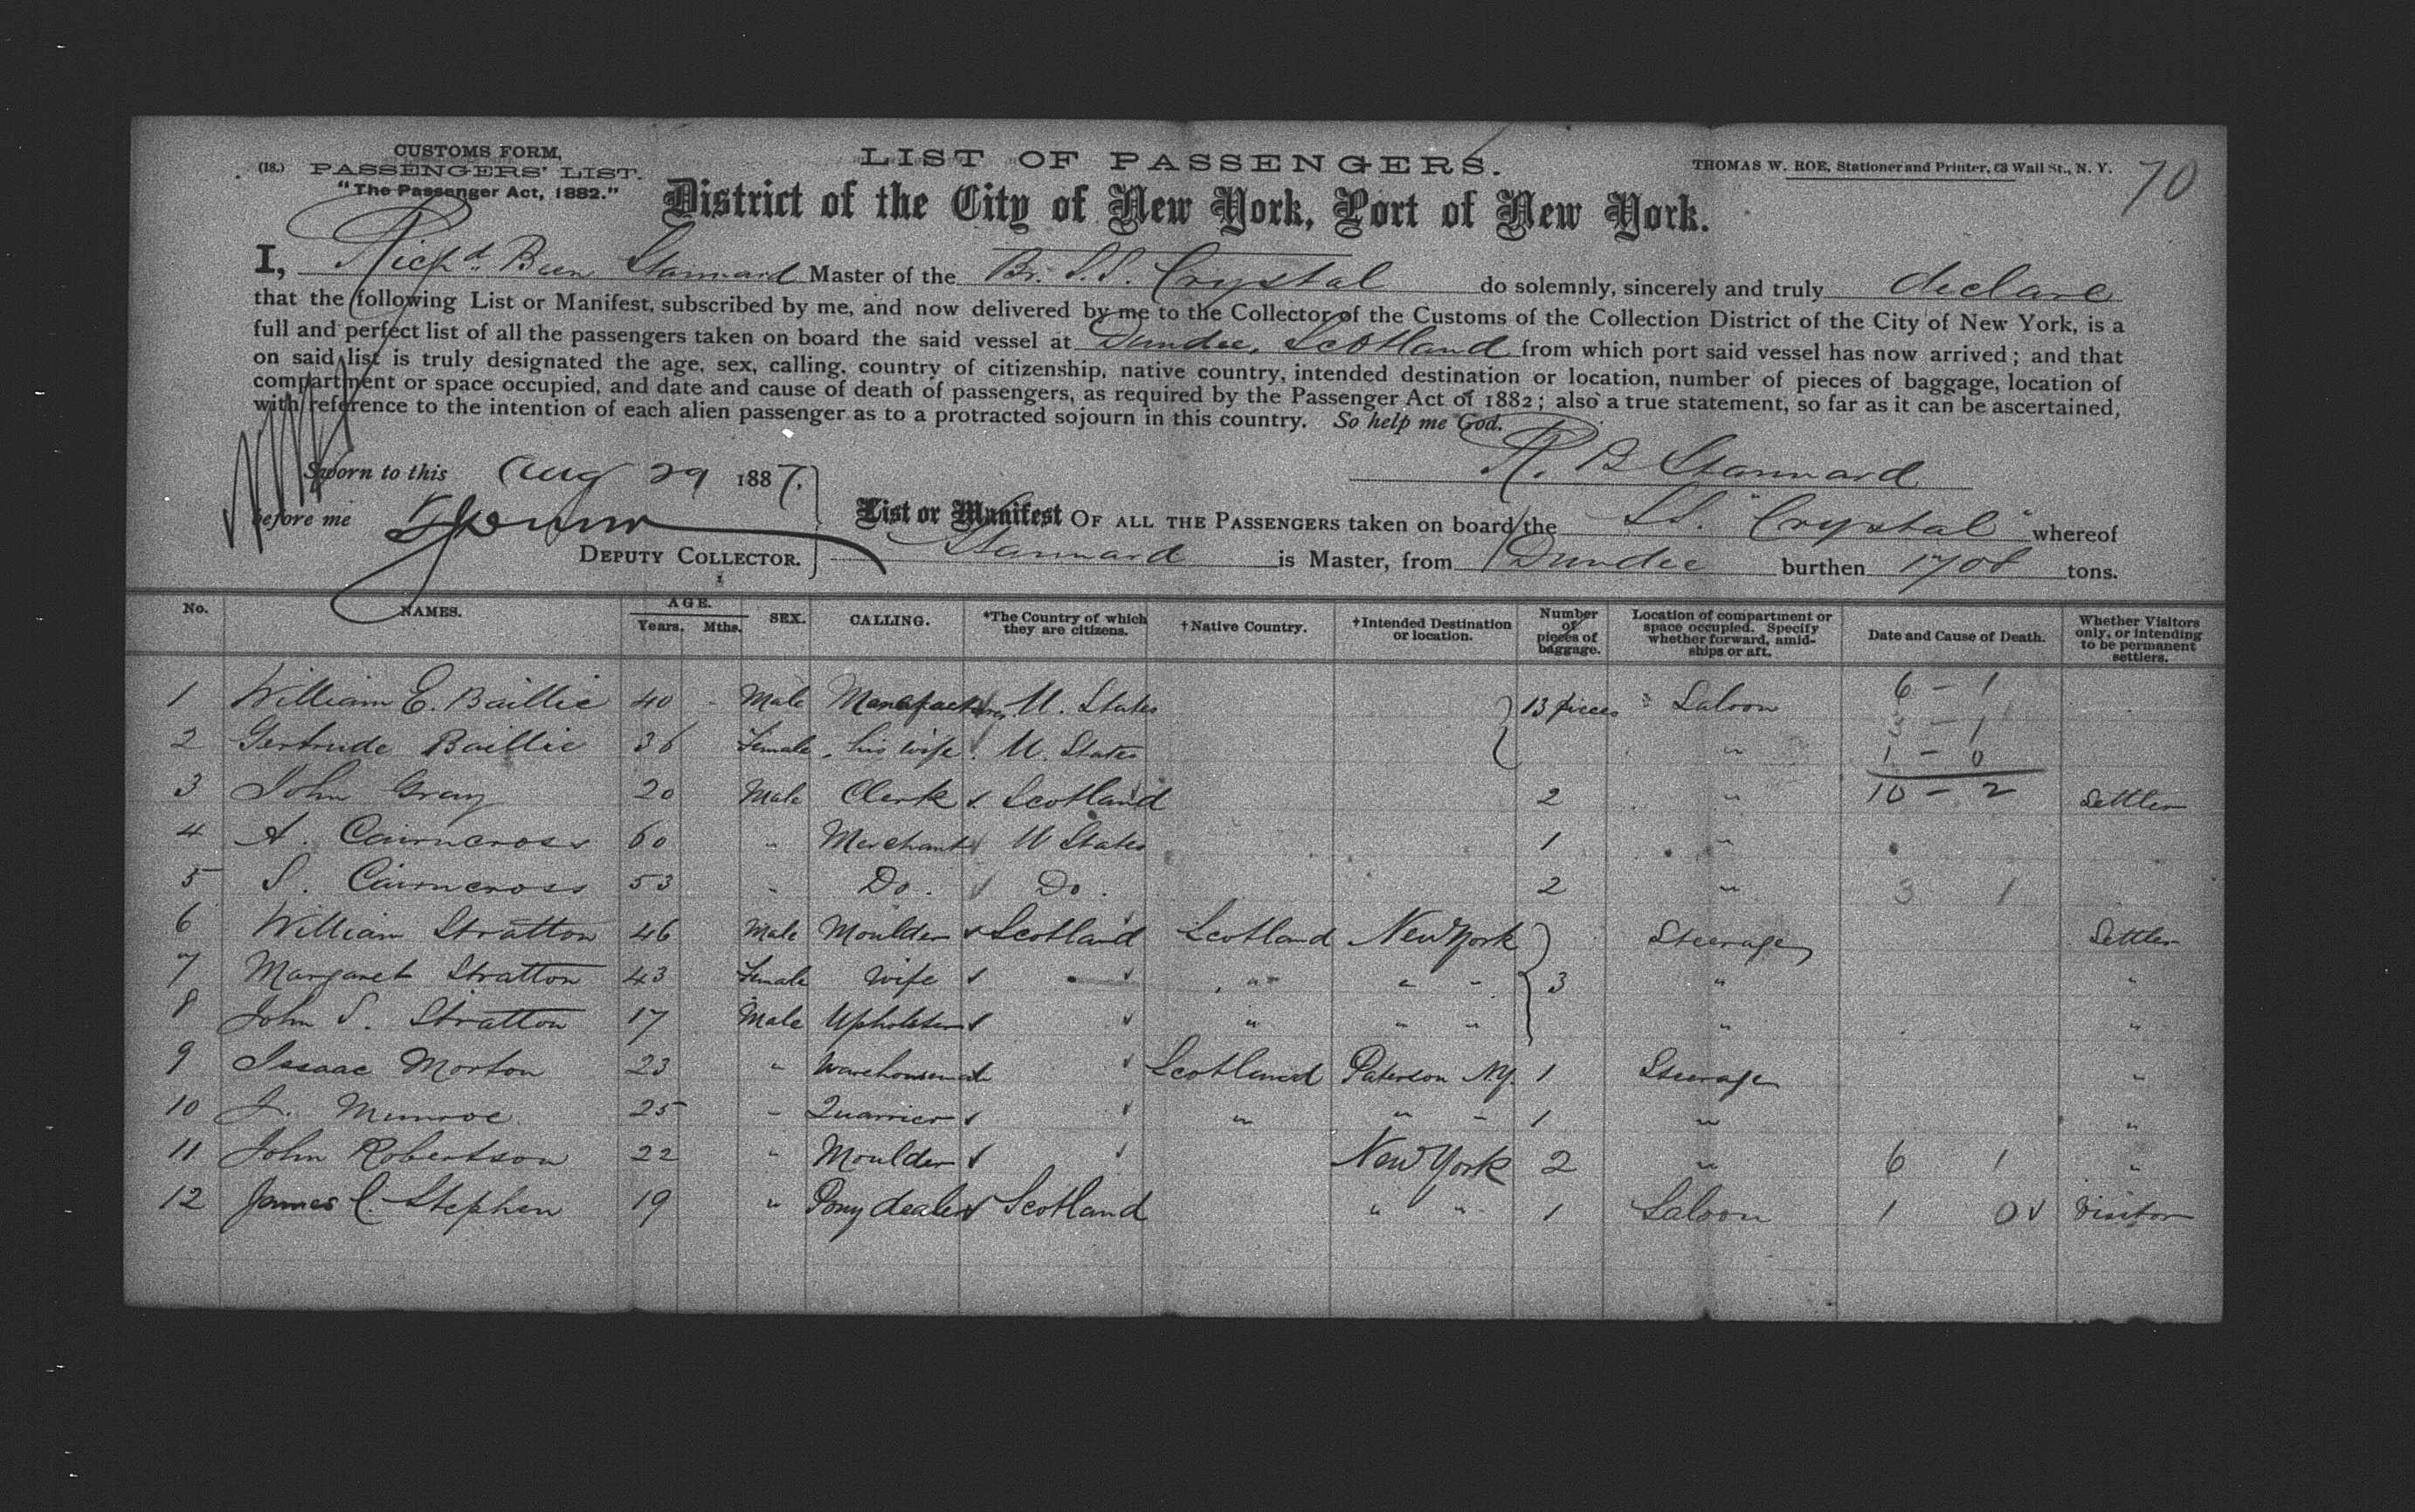 CUSTOMS FORM,
(18.) PASSENGERS' LIST.
"The Passenger Act, 1882."
LIST OF PASSENGERS.
THOMAS W. ROE, Stationer and Printer, 63 Wall St., N. Y.
70
District of the City of New York, Port of New York.
I, Richd. Stannard Master of the Br. S.S. Crystal do solemnly, sincerely and truly declare
that the following List or Manifest, subscribed by me, and now delivered by me to the Collector of the Customs of the Collection District of the City of New York, is a
full and perfect list of all the passengers taken on board the said vessel at Dundee, Scotland from which port said vessel has now arrived; and that
on said list is truly designated the age, sex, calling, country of citizenship, native country, intended destination or location, number of pieces of baggage, location of
compartment or space occupied, and date and cause of death of passengers, as required by the Passenger Act of 1882; also a true statement, so far as it can be ascertained,
with reference to the intention of each alien passenger as to a protracted sojourn in this country. So help me God.
Sworn to this Aug 29 1887.
R. B Stannard
before me
DEPUTY COLLECTOR.
List or Manifest OF ALL THE PASSENGERS taken on board the S.S. "Crystal" whereof
Stannard is Master, from Dundee burthen 1708 tons.
No. NAMES. AGE. Years. Mths. SEX. CALLING. *The Country of which they are citizens. †Native Country. †Intended Destination or location. Number of pieces of baggage. Location of compartment or space occupied. Specify whether forward, amidships or aft. Date and Cause of Death. Whether Visitors only, or intending to be permanent settlers.
1 William E. Baillie 40 - Male Manufacturer U. States 13 pieces Saloon 6 - 1
2 Gertrude Baillie 36 Female his wife U. States " 3 - 1
1 - 0
3 John Gray 20 Male Clerk Scotland 2 " 10 - 2 Settler
4 A. Cairncross 60 " Merchant U States 1 "
5 S. Cairncross 53 " Do. Do. 2 " 3 1
6 William Stratton 46 Male Moulder Scotland Scotland New York Steerage Settler
7 Margaret Stratton 43 Female Wife " " " " 3 " "
8 John S. Stratton 17 Male Upholsterer " " " " "
9 Isaac Morton 23 " Warehouseman Scotland Paterson N.Y. 1 Steerage "
10 J. Munroe 25 " Quarrier " " " 1 " "
11 John Robertson 22 " Moulder New York 2 " 6 1 "
12 James C. Stephen 19 " Pony dealer Scotland " " 1 Saloon 1 0 Visitor